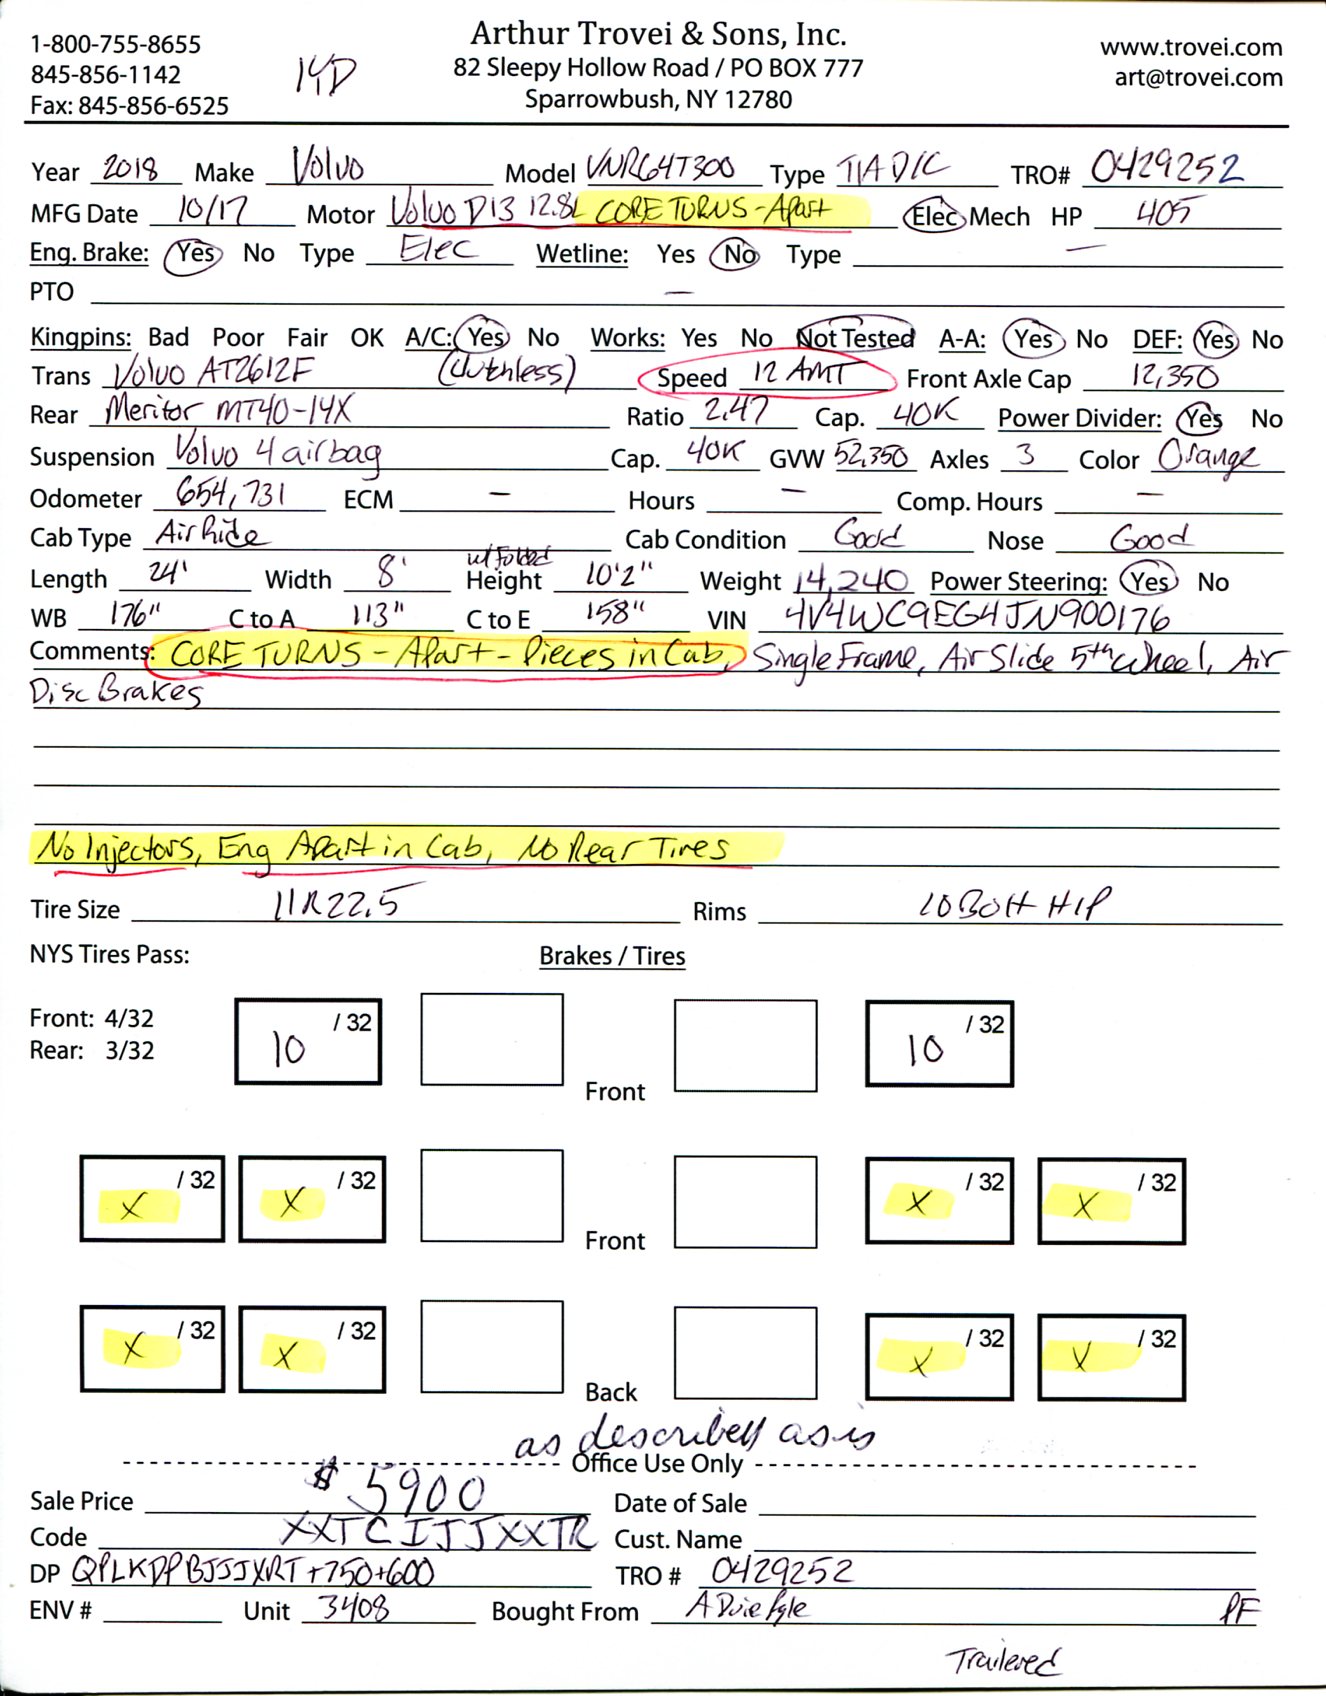 1-800-755-8655
845-856-1142
Fax: 845-856-6525
Arthur Trovei & Sons, Inc.
82 Sleepy Hollow Road / PO BOX 777
Sparrowbush, NY 12780
www.trovei.com
art@trovei.com
Year 2018 Make Volvo Model VNR64T300 Type T/A D/C TRO# 0429252
MFG Date 10/17 Motor Volvo D13 12.8L CORE TURNS - Apart Elec Mech HP 405
Eng. Brake: Yes No Type Elec Wetline: Yes No Type —
PTO —
Kingpins: Bad Poor Fair OK A/C: Yes No Works: Yes No Not Tested A-A: Yes No DEF: Yes No
Trans Volvo AT2612F (Clutchless) Speed 12 AMT Front Axle Cap 12,350
Rear Meritor MT40-14X Ratio 2.47 Cap. 40K Power Divider: Yes No
Suspension Volvo 4 airbag Cap. 40K GVW 52,350 Axles 3 Color Orange
Odometer 654,731 ECM — Hours — Comp. Hours —
Cab Type Air Ride Cab Condition Good Nose Good
Length 24' Width 8' w/ Folded Height 10'2" Weight 14,240 Power Steering: Yes No
WB 176" C to A 113" C to E 158" VIN 4V4WC9EG4JN900176
Comments: CORE TURNS - Apart - Pieces in Cab, Single Frame, Air Slide 5th Wheel, Air
Disc Brakes
No Injectors, Eng Apart in Cab, No Rear Tires
Tire Size 11R22.5 Rims 10 Bolt H/P
NYS Tires Pass: Brakes / Tires
Front: 4/32
Rear: 3/32
10 /32 Front 10 /32
X /32 X /32 Front X /32 X /32
X /32 X /32 Back X /32 X /32
as described as is
Office Use Only
Sale Price $5900 Date of Sale
Code XXTCIJJXXTR Cust. Name
DP QPLKDPBJJJXRT +750+600 TRO # 0429252
ENV # Unit 3408 Bought From PF
Trailered